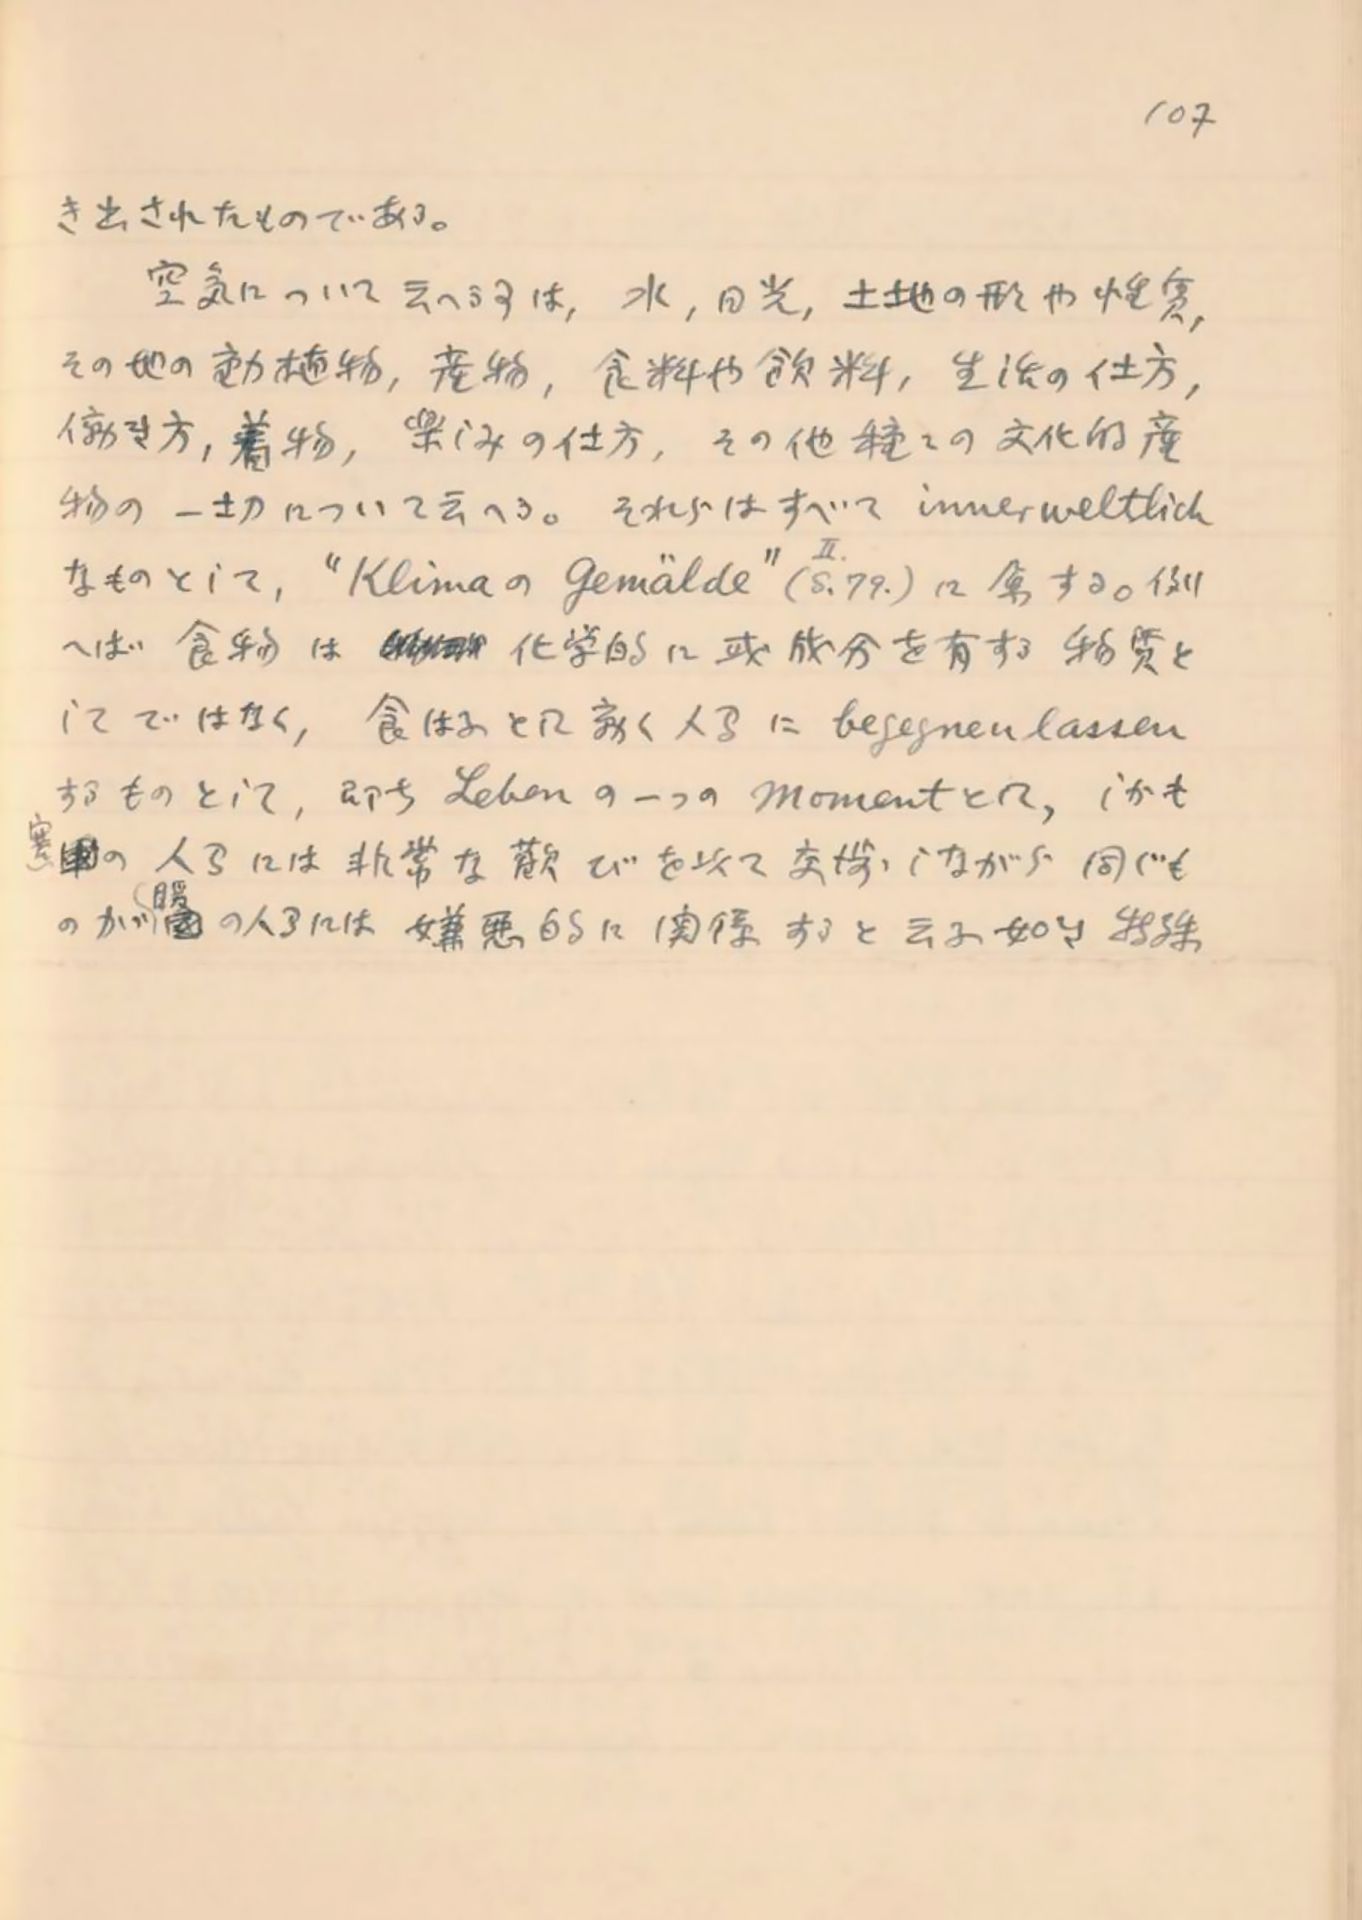 107
き出されたものである。
空気について云へる事は, 水, 日光, 土地の形や性質,
その地の動植物, 産物, 食料や飲料, 生活の仕方,
働き方, 着物, 楽しみの仕方, その他種々の文化的産
物の一切について云へる。それらはすべて innerweltlich
なものとして, “Klimaの Gemälde” (II. S. 79.) に属する。例
へば 食物は 化学的に或成分を有する 物質と
してではなく, 食はふとして 働く人間に begegnen lassen
するものとして, 即ち Leben の一つの Moment として, しかも
寒国の人間には非常な歓びを以て交渉しながら 同じも
のが 暖国の人間には 嫌悪的に関係すると云ふ如き 特殊